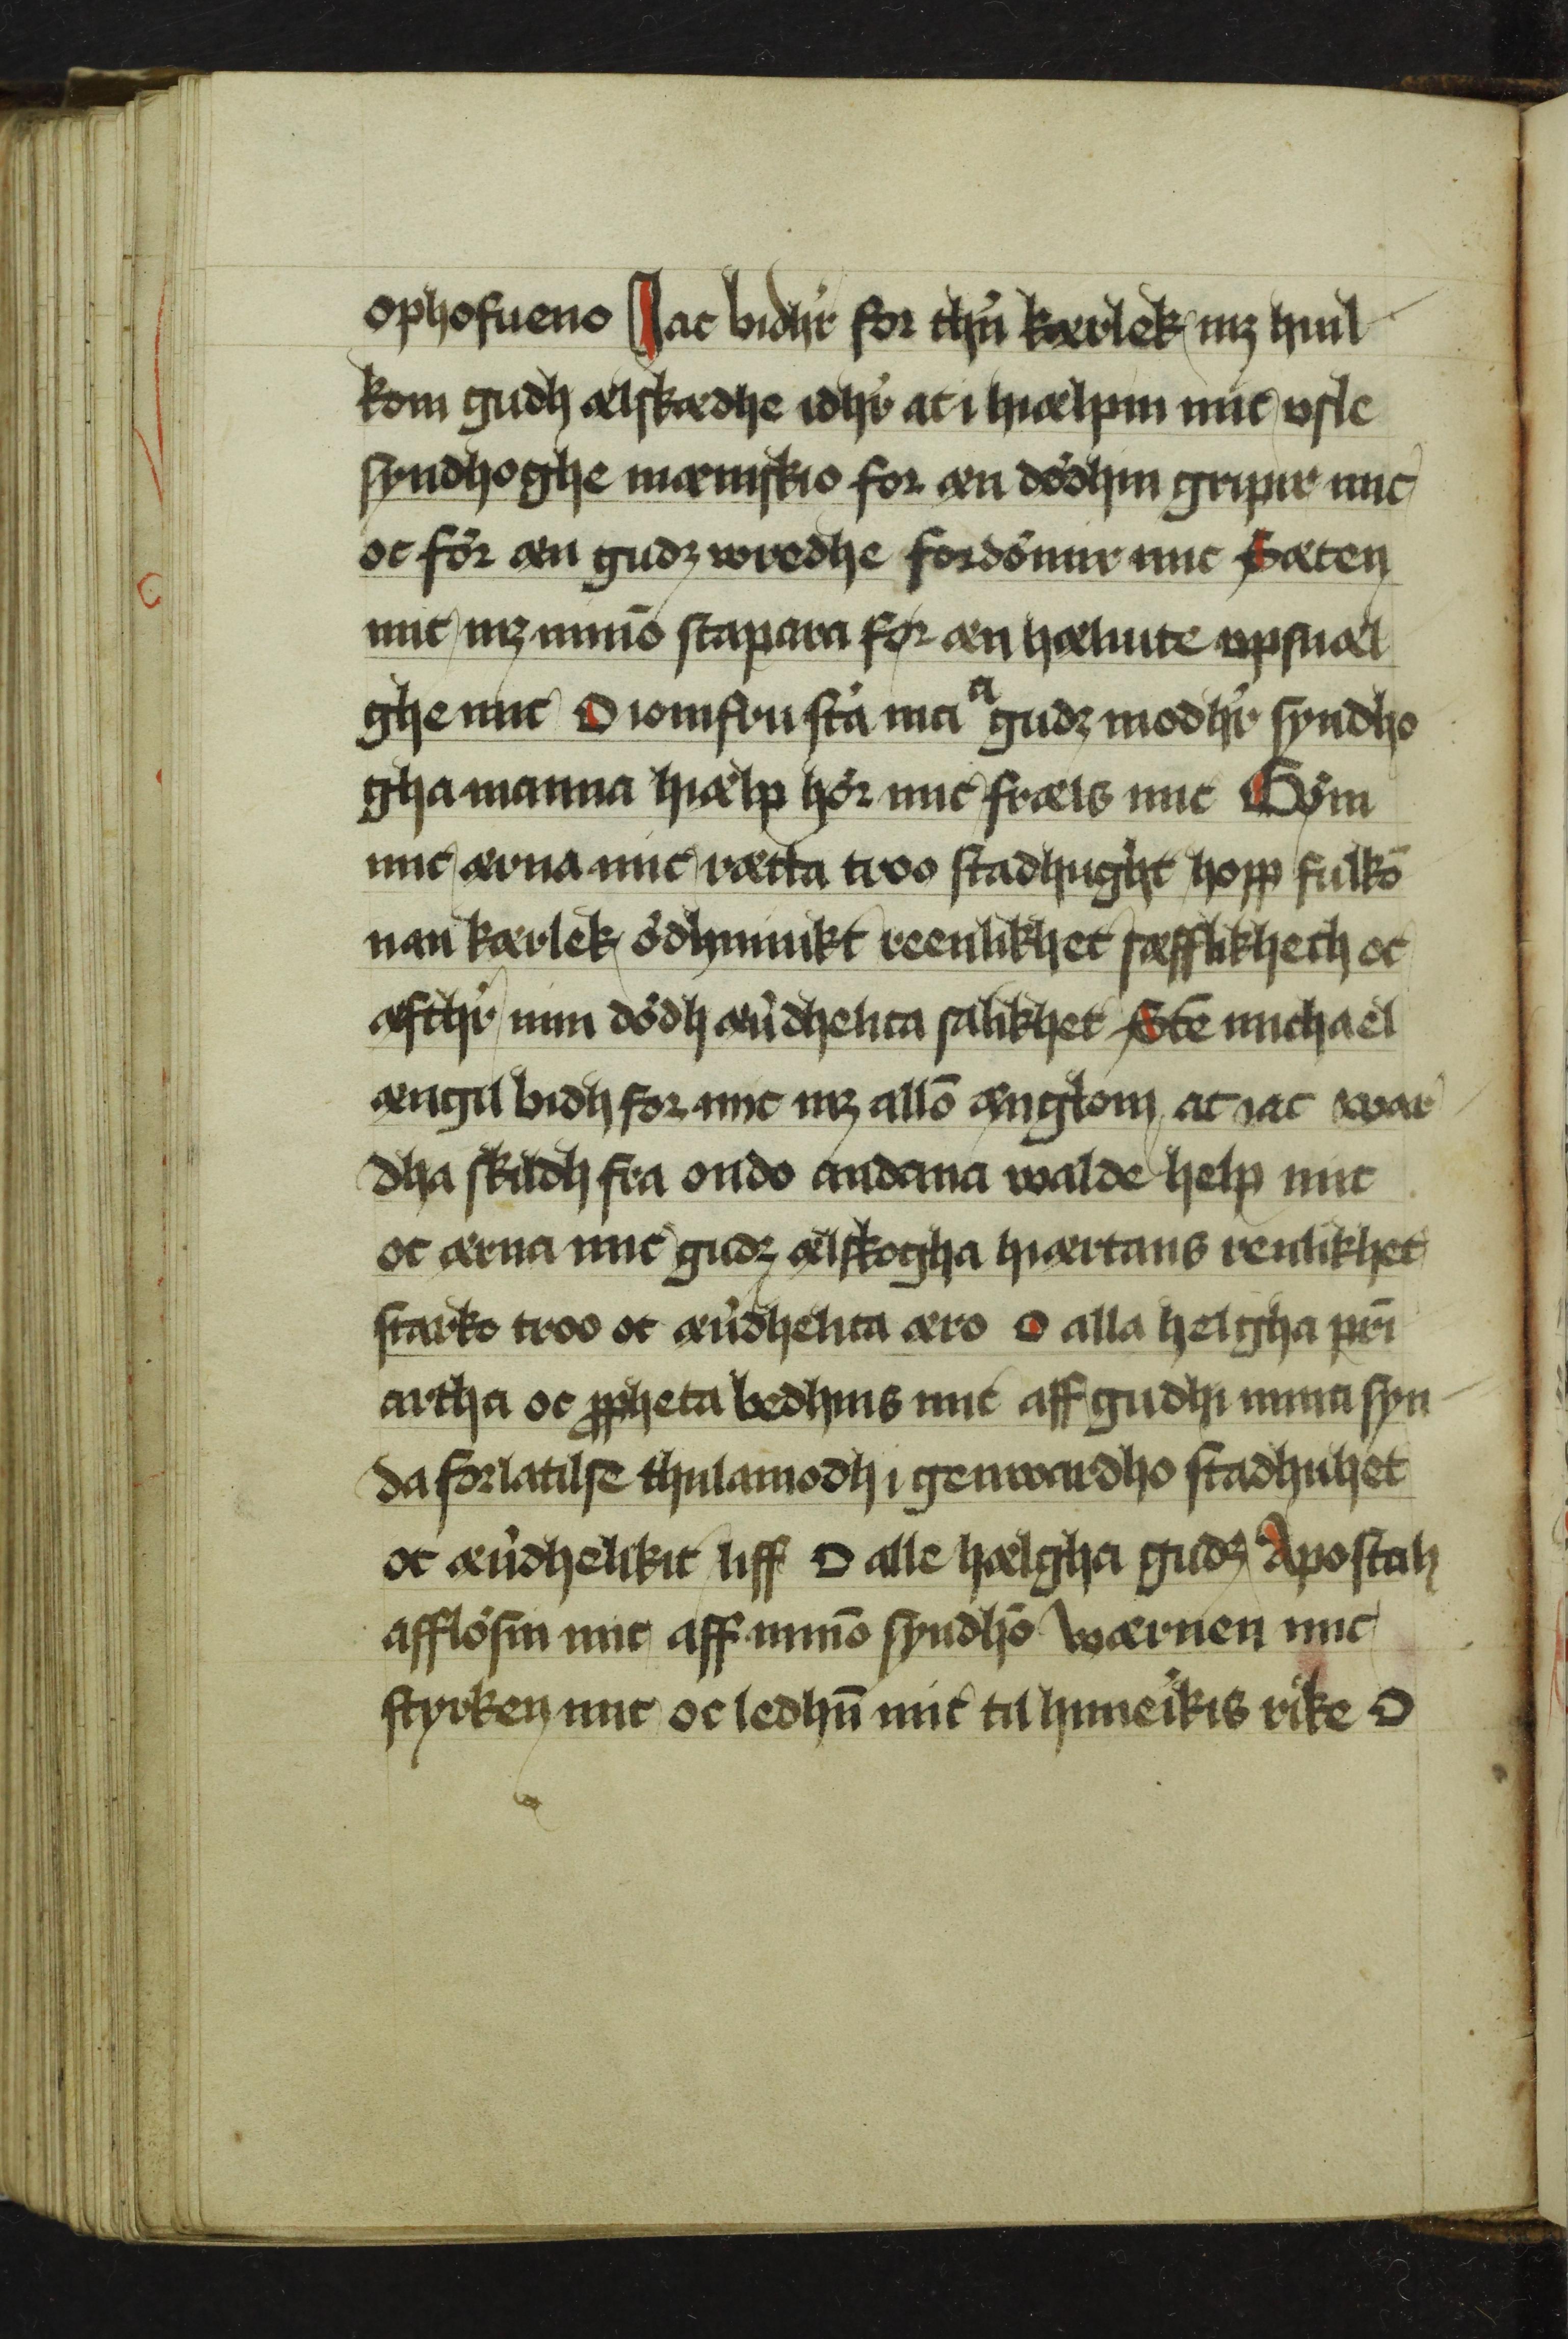 ophofueno Jac bidhr for thn kærlek mz huil
kom gudh ælskædhe idhr at i hiælpin mic vsle
syndhoghe mæniskio for æn dödhin gripir mic
oc för æn gudz wredhe fordömir mic Sæten
mic mz minō skapara for æn hæluite vpsuæl
ghe mic O iomfru sta ma a gudz modhr syndho
gha manna hiælp hör mic fræls mic Göm
mic ærna mic rætta troo stadhught hopp fulkō
nan kærlek ödhmiukt reenlikhet sæfflikheth oc
æfthr min dödh æudhelica salikhet Ste michael
ængil bidh for mic mz allō ænglom at iac war
dha skildh fra ondo andana walde help mic
oc ærna mic gudz ælskogha hiærtans renlikhet
starko troo oc æudhelica æro O alla helgha pri
artha oc ppheta bedhins mic aff gudhi mina syn
da forlatilse thulamodh i genwardho stadhuhet
oc æudhelikit liff O alle hælgha gudz Apostuli
afflösin mic aff minō syndhō wærnen mic
styrken mic oc ledhn mic til himeikis rike O